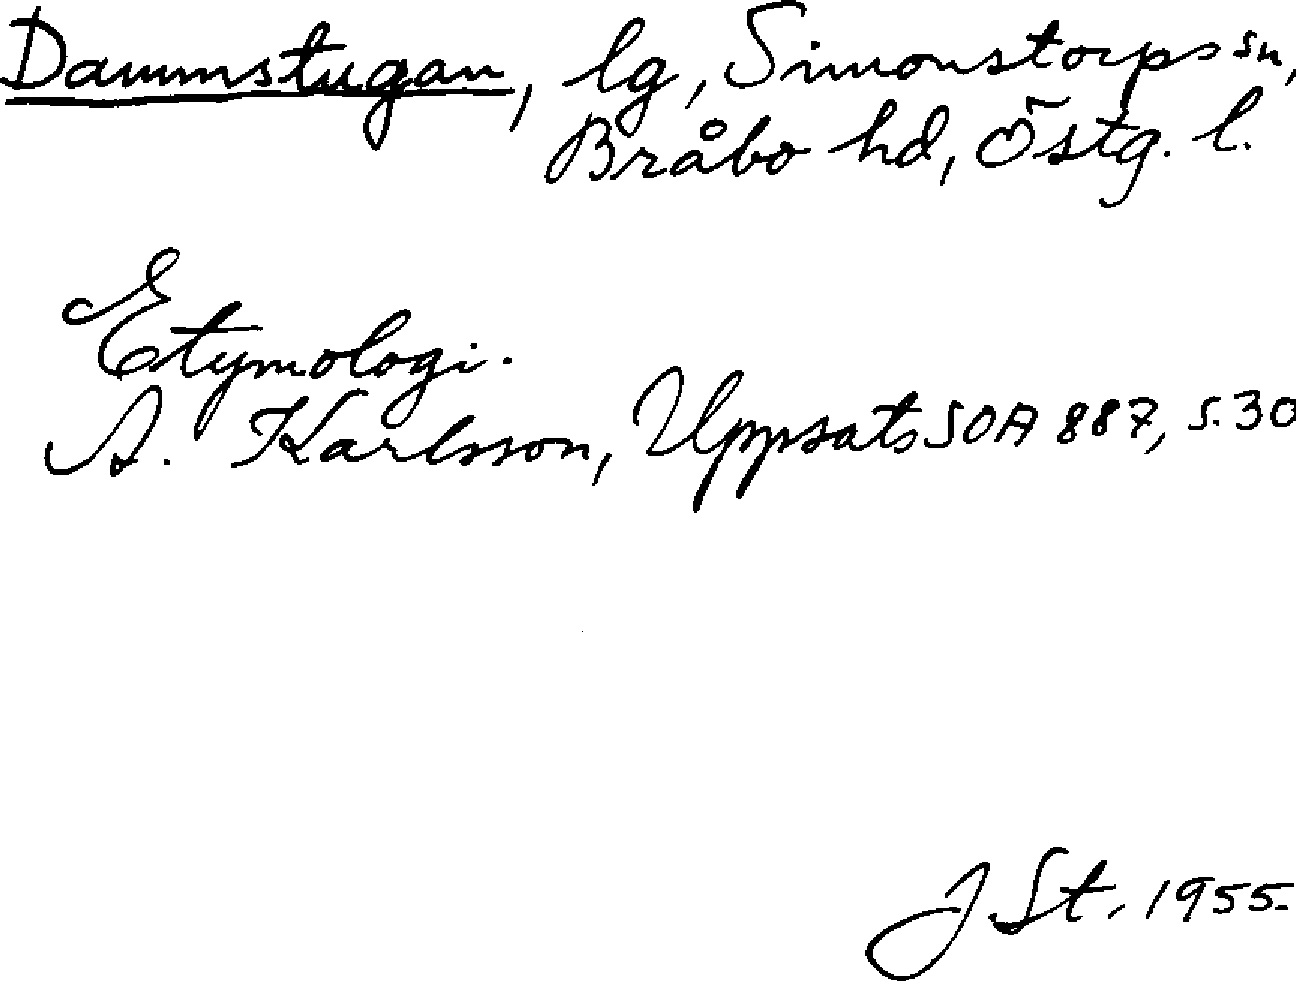 Dammstugan, lg, Simonstorps sn,
Bråbo hd, Östg. l.
Etymologi.
A. Karlsson, Uppsats SOA 887, s. 30
J St. 1955.